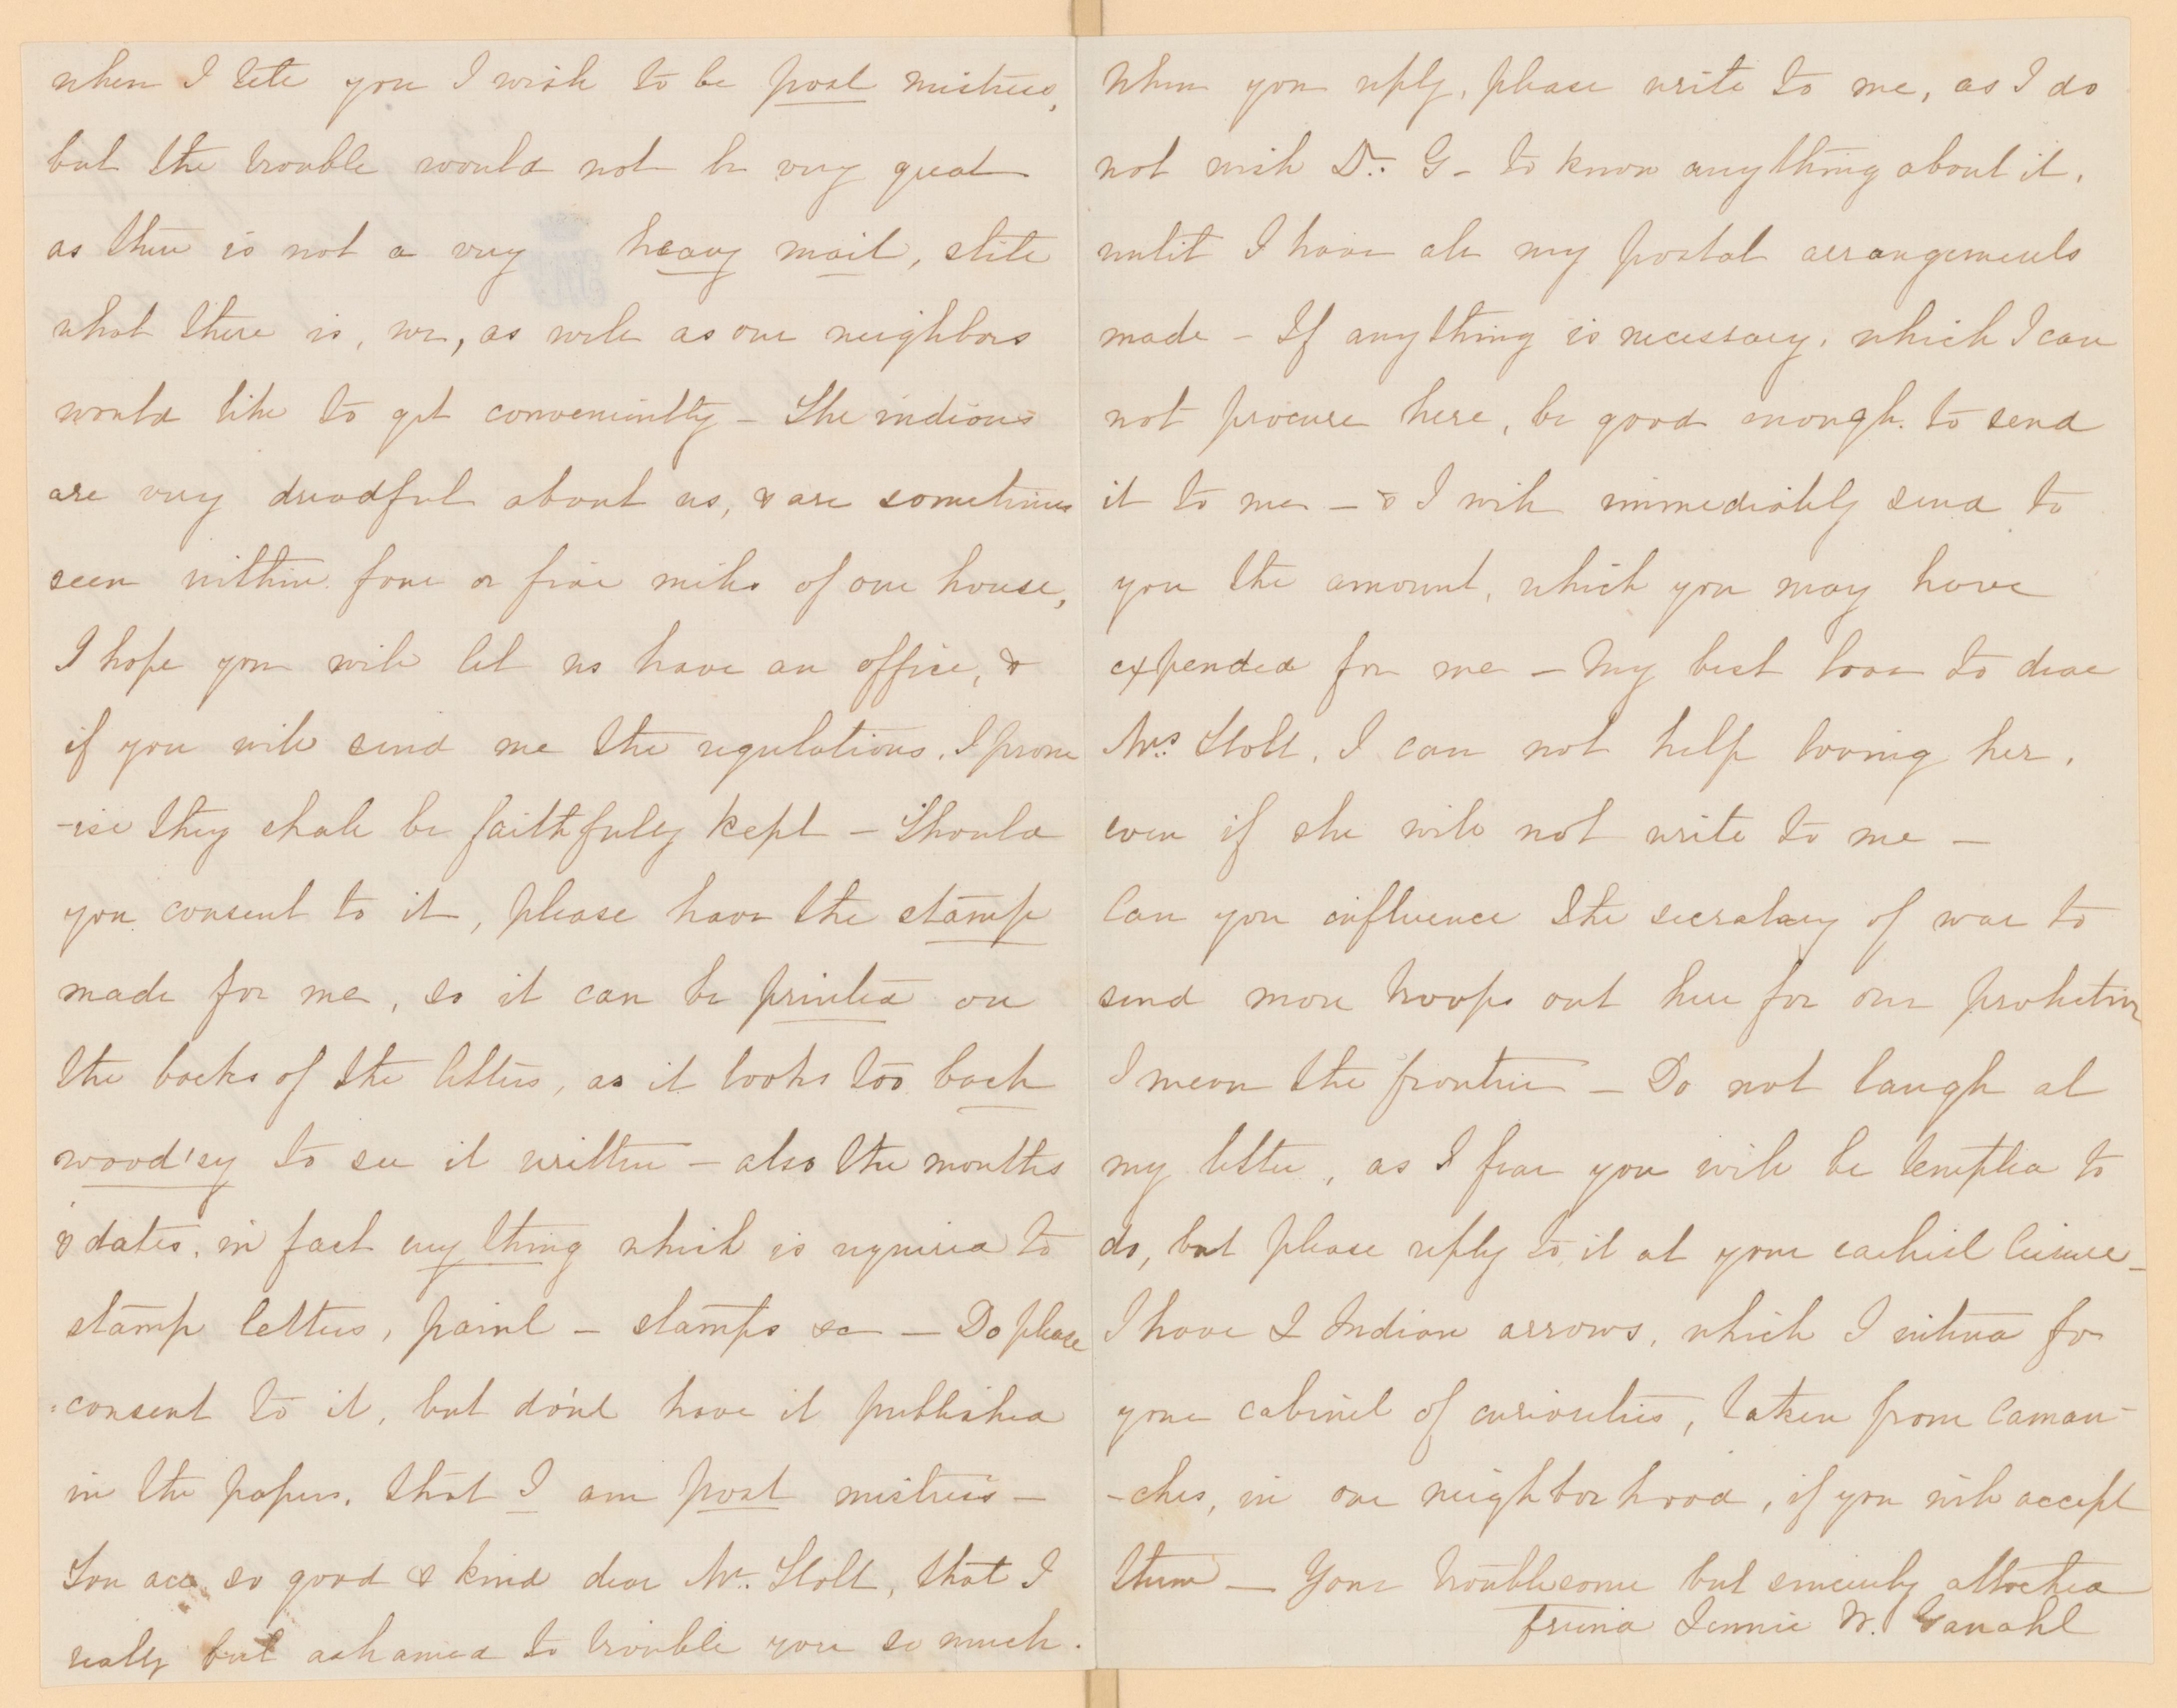 when I tell you I wish to be post mistress,
but the trouble would not be very great
as there is not a very heavy mail, still
what there is, we, as well as our neighbors
would like to get conveniently – The indians
are very dreadful about us, & are sometimes
seen within four or five miles of our house,
I hope you will let us have an office, &
if you will send me the regulations, I prom
-ise they shall be faithfully kept – Should
you consent to it, please have the stamp
made for me, so it can be printed on
the backs of the letters, as it looks too back
wood'sy to see it written – also the months
& dates, in fact any thing which is required to
stamp letters, paint – stamps &c – Do please
consent to it, but do'nt have it published
in the papers, that I am post mistress –
You are so good & kind dear Mr. Holt, that I
really feel ashamed to trouble you so much.
When you reply, please write to me, as I do
not wish Dr. G – to know anything about it,
until I have all my postal arrangements
made – If any thing is necessary, which I can
not procure here, be good enough to send
it to me – & I will immediately send to
you the amount, which you may have
expended for me – My best love to dear
Mrs. Holt, I can not help loving her,
even if she will not write to me –
Can you influence the secratary of war to
send more troops out here for our protection
I mean the frontier – Do not laugh at
my letter, as I fear you will be tempted to
do, but please reply to it at your earliest leisure –
I have 2 Indian arrows, which I intend for
your cabinet of curiosities, taken from Caman-
-ches, in our neighborhood, if you will accept
them – Your troublesome but sincerely attached
friend Jennie W. Ganahl